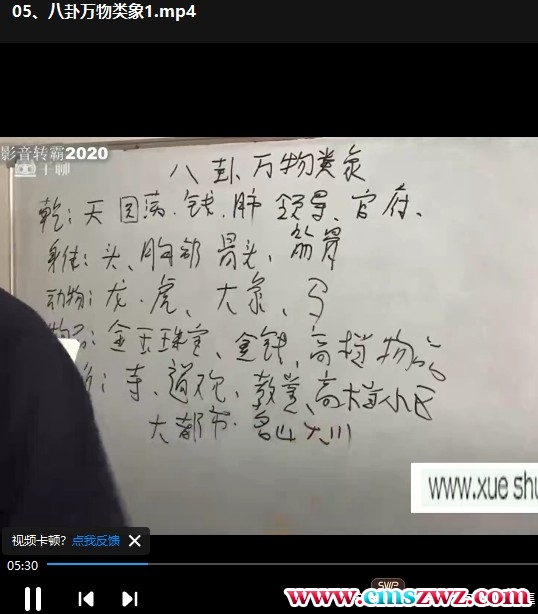 05、八卦万物类象1.mp4
影音转霸2020
千聊
八卦万物类象
乾：天 圆满.钱.肺 领导、官府、
身体：头、胸部 骨头、筋骨
动物：龙.虎、大象、
物品：金玉珠宝、金钱、高档物品
：寺、道院、教堂、高档小区
大都市.名山大川
www.xue shu
视频卡顿？点我反馈
05:30
SVIP
www.cmszwz.com
集